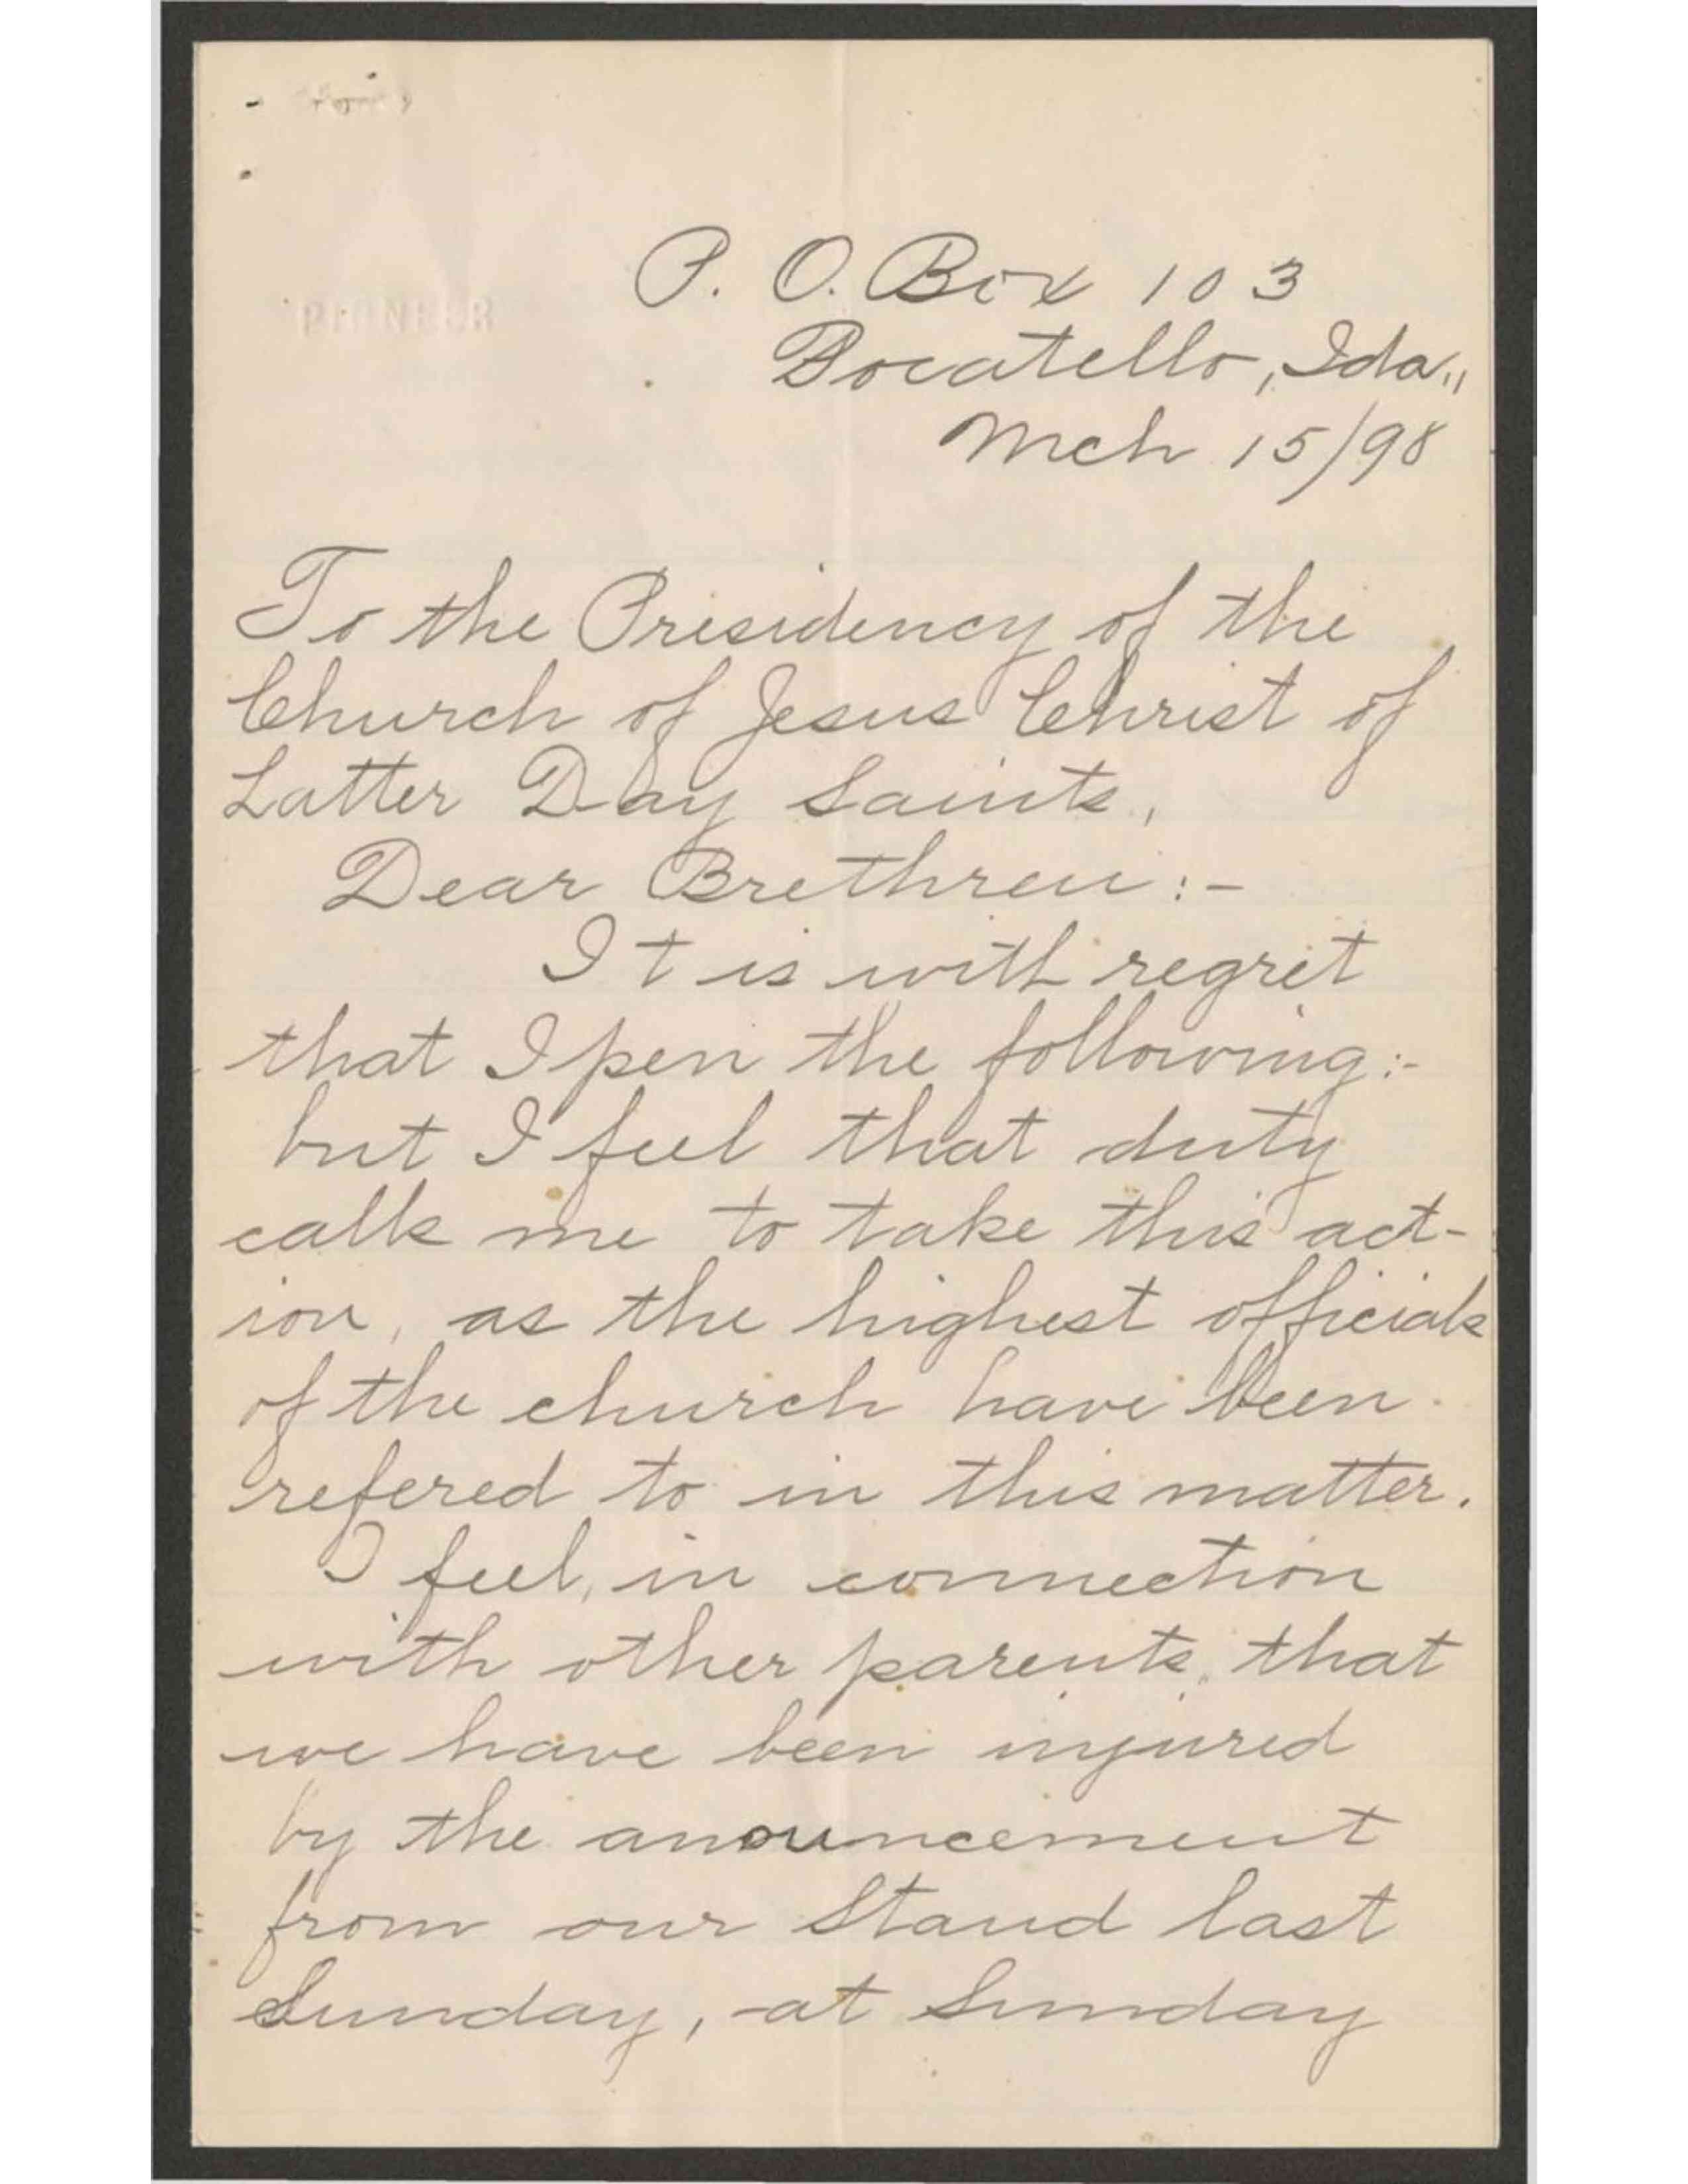 PIONEER
P. O. Box 103
Pocatello, Ida.,,
Mch 15/98
To the Presidency of the
Church of Jesus Christ of
Latter Day Saints,
Dear Brethren:-
It is with regret
that I pen the following:-
but I feel that duty
calls me to take this act-
ion, as the highest officials
of the church have been
refered to in this matter.
I feel, in connection
with other parents, that
we have been injured
by the anouncement
from our Stand last
Sunday, at Sunday